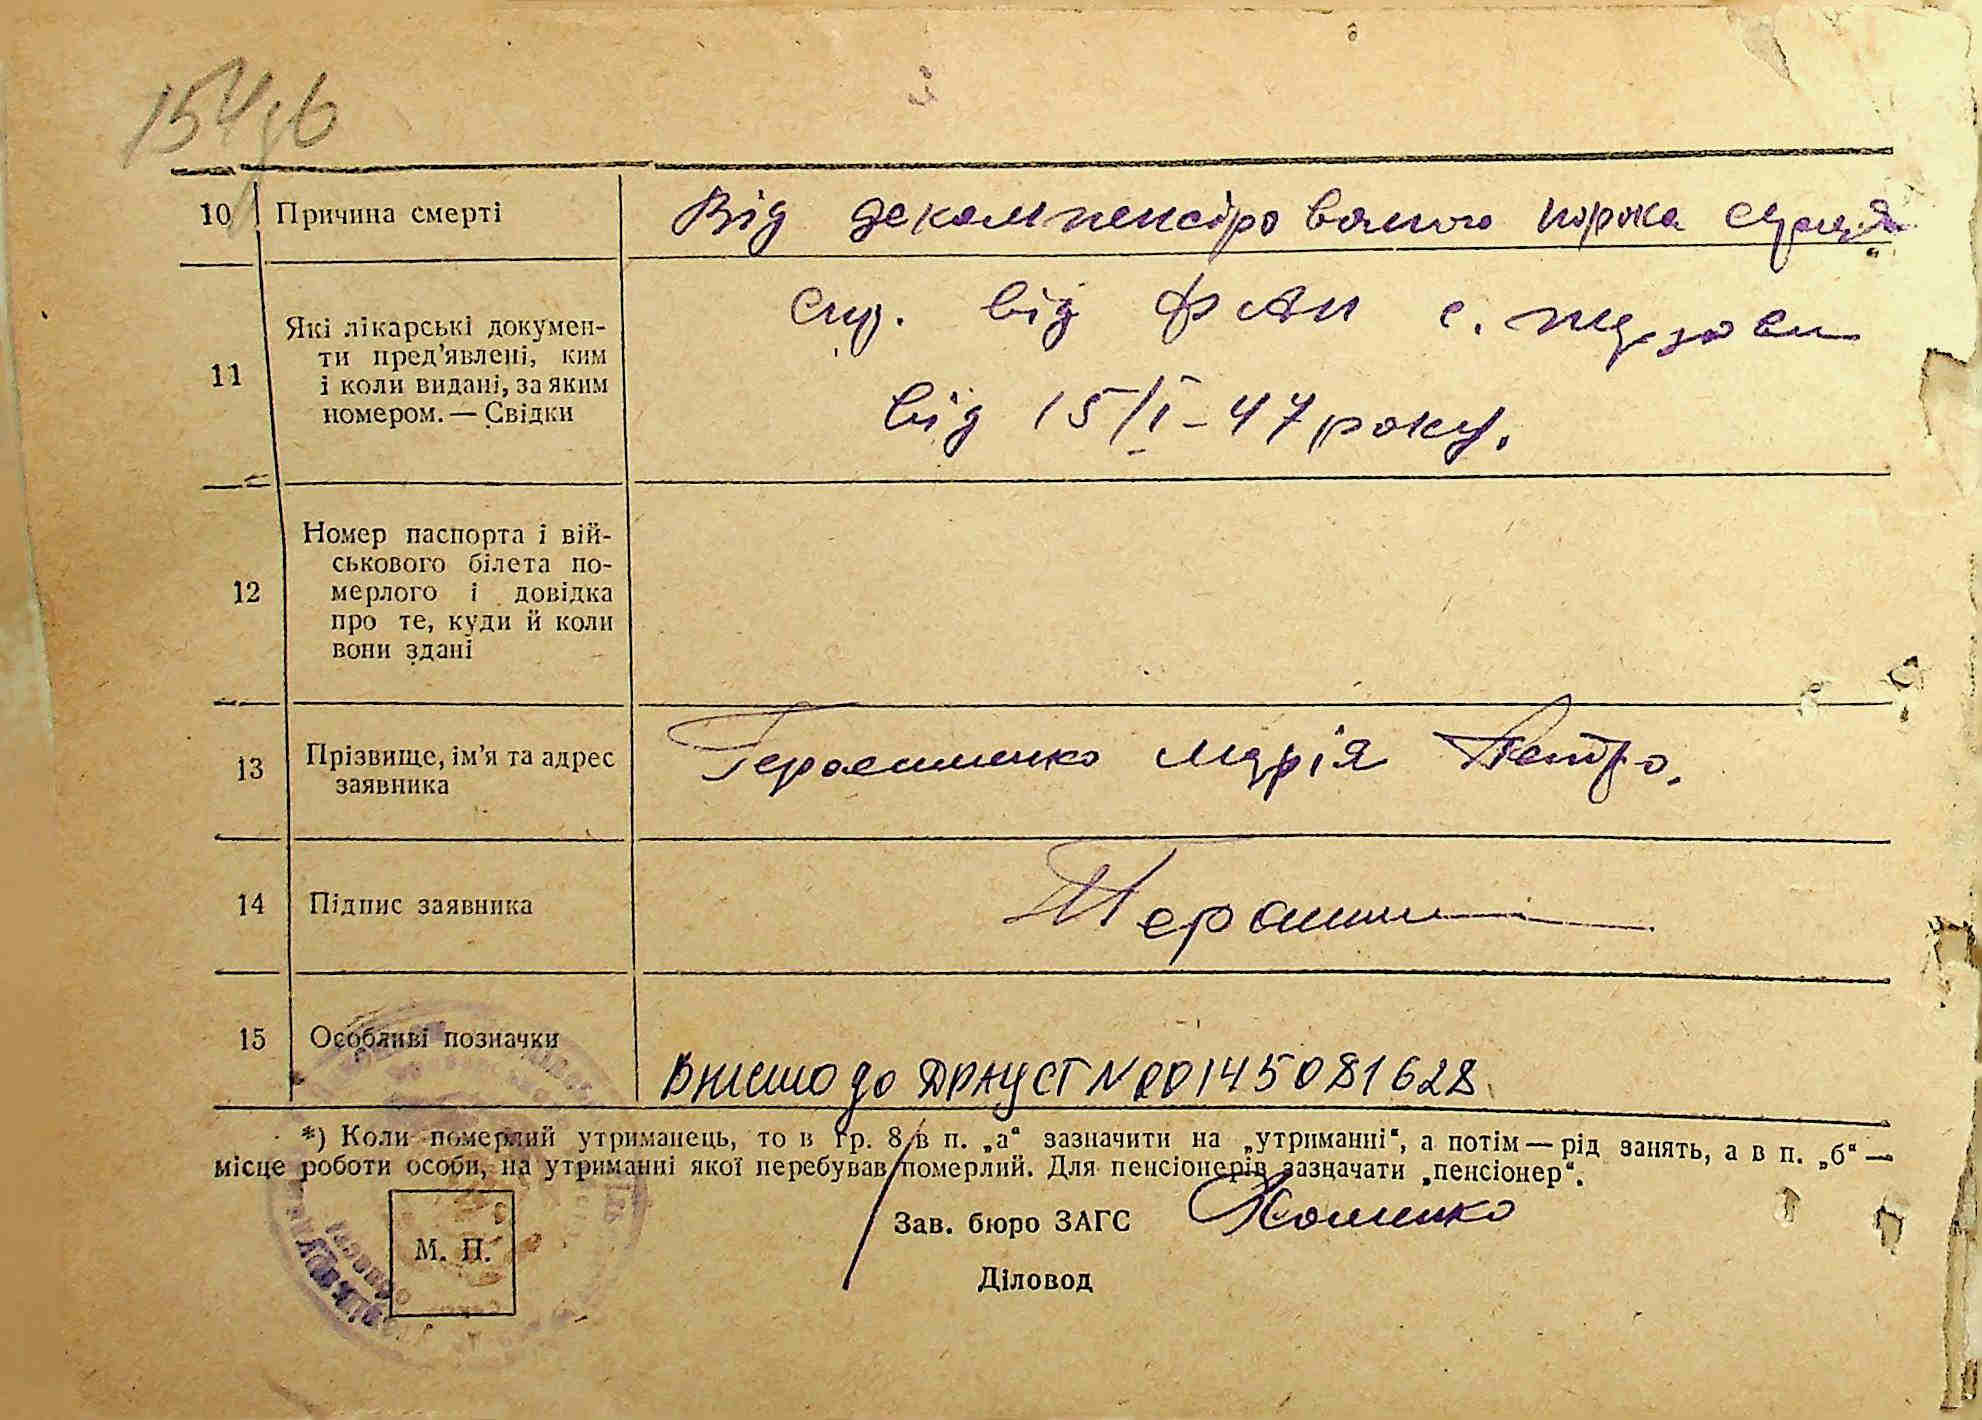 154
10 Причина смерті Від декомпенсірованого порока серця
11 Які лікарські докумен-
ти пред’явлені, ким
і коли видані, за яким
номером. — Свідки
від с.
від 15/I-47 року.
12 Номер паспорта і вій-
ськового білета по-
мерлого і довідка
про те, куди й коли
вони здані
13 Прізвище, ім’я та адрес
заявника
Герасименко Марія Петро.
14 Підпис заявника
15 Особливі позначки
Внесено до ДРАЦСГ №00145081628
*) Коли померлий утриманець, то в гр. 8 в п. „а“ зазначити на „утриманні“, а потім — рід занять, а в п. „б“ —
місце роботи особи, на утриманні якої перебував померлий. Для пенсіонерів зазначати „пенсіонер“.
М. П.
Зав. бюро ЗАГС Хоменко
Діловод